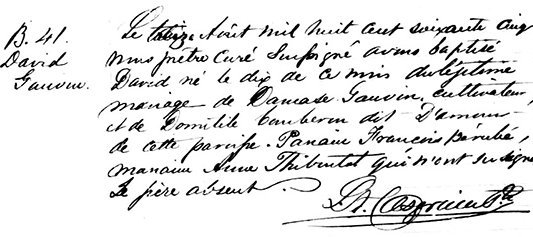 B. 41.
David
Gauvin.
Le treize Août mil huit cent soixante cinq
nous prêtre Curé Soussigné avons baptisé
David né le dix de ce mois du légitime
mariage de Damase Gauvin, cultivateur,
et de Domitile Canberon dit D'amour
de cette paroisse. Parrain François Bérubé,
marraine Anne Thiboutot qui n'ont su signer
Le père absent.
Ptre